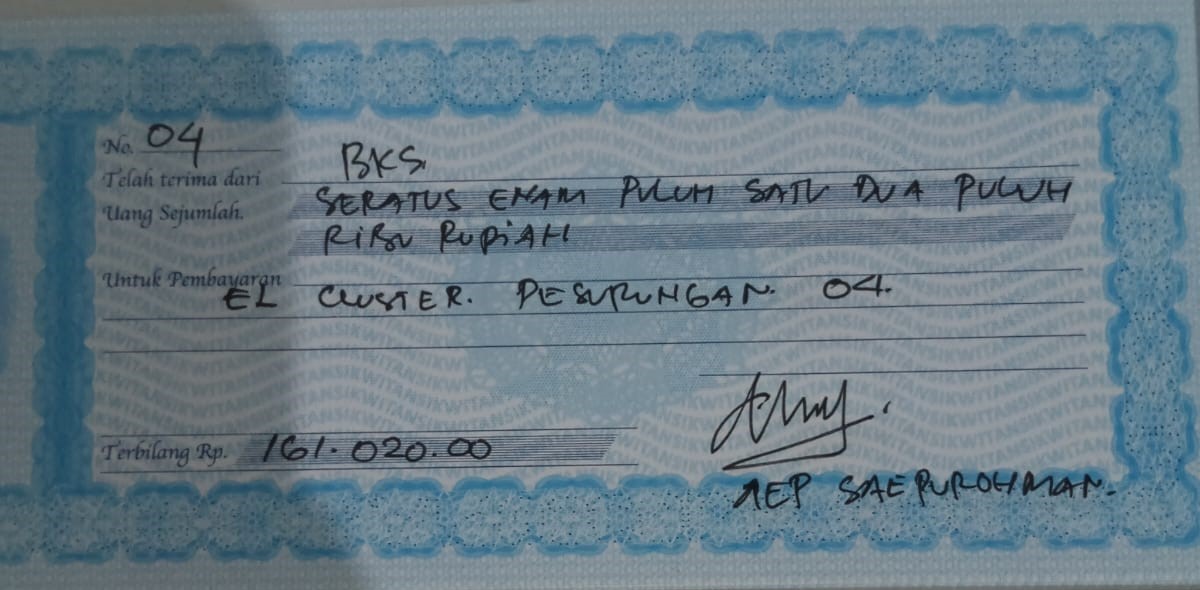 No. 04
Telah terima dari BKS.
Uang Sejumlah. SERATUS ENAM PULUH SATU DUA PULUH
RIBU RUPIAH
Untuk Pembayaran
EL CLUSTER. PESURUNGAN. 04.
Terbilang Rp. 161.020.00
AEP SAEPUROHMAN.